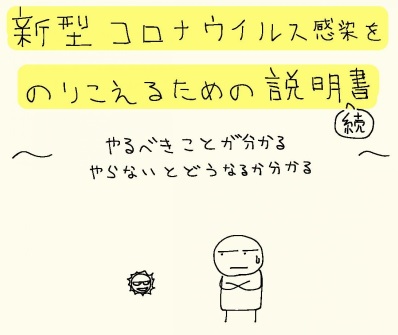 新型コロナウイルス感染を
のりこえるための説明書
続
〜やるべきことが分かる
やらないとどうなるか分かる〜